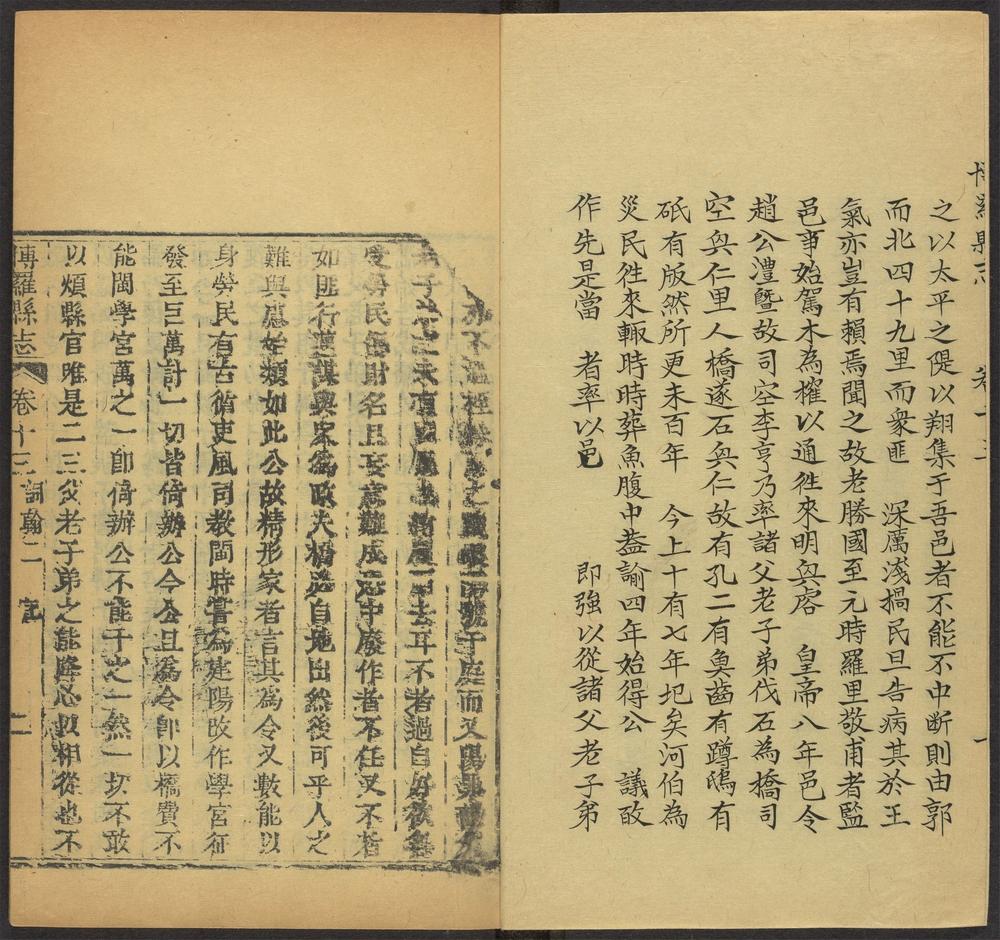 之以太平之隄以翔集于吾邑者不能不中断則由郭
而北四十九里而衆匪 深厲淺揭民旦告病其於王
氣亦豈有賴焉聞之故老勝國至元時羅里敬甫者監
邑事始駕木為榷以通徃來明與 皇帝八年邑令
趙公澧暨故司空李亨乃率諸父老子弟伐石為橋司
空與仁里人橋遂石與仁故有孔二有奐齒有蹲鴟有
砥有版然所更未百年 今上十有七年圯矣河伯為
災民徃來輙時時葬魚腹中葢諭四年始得公 議改
作先是當 者率以邑 即強以從諸父老子弟
不 之 號于庭而又陽
子 去耳不者過自
勞民傷財名且妄意難成忘中廢作者不任又不者
如匪行邁謀與家為政大橋迯自地出然後可乎人之
難與慮始類如此公故精形家者言其為令又數能以
身勞民有古循吏風司教閩時嘗為建陽改作學宮征
發至巨萬計一切皆倚辦公今公且為令卽以橋費不
能閩學宮萬之一卽倚辦公不能于之一然一切不敢
以煩縣官唯是二三父老子弟之能降心以相從也不
博羅縣志 卷十三 詞翰二 記 二